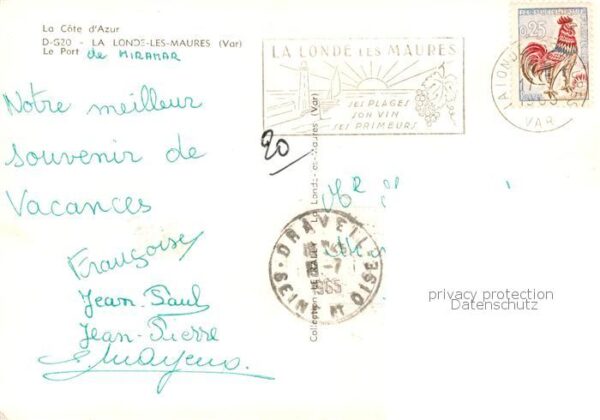 La Côte d'Azur
D-520 - LA LONDE-LES-MAURES (Var)
Le Port de MIRAMAR
Notre meilleur
souvenir de
Vacances
Françoise
Jean-Paul
Jean-Pierre
LA LONDE LES MAURES
SES PLAGES
SON VIN
SES PRIMEURS
0,25
VAR
20
La Londe-les-Maures (Var)
DRAVEIL
1965
SEINE ET OISE
privacy protection
Datenschutz